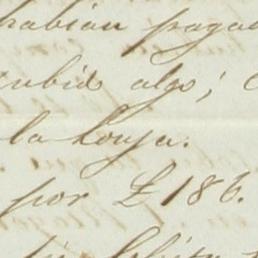 habian pagad
subió algo;
la Lonja.
por £186.